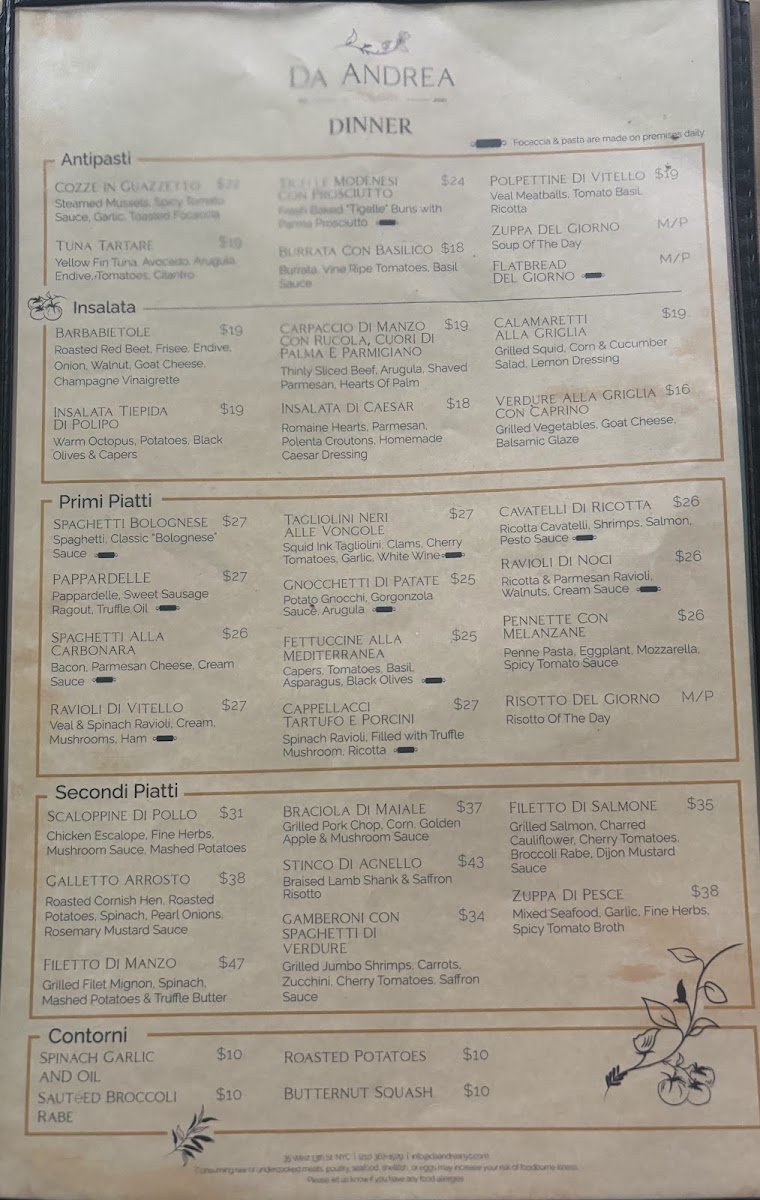 DA ANDREA
DINNER
Focaccia & pasta are made on premises daily
Antipasti
COZZE IN GUAZZETTO
Steamed Mussels, Spicy Tomato
Sauce, Garlic, Toasted Focaccia
TUNA TARTARE $19
Yellow Fin Tuna, Avocado, Arugula
Endive, Tomatoes, Cilantro
MODENESI $24
CON PROSCIUTTO
Fresh Baked "Tigelle" Buns with
Parma Prosciutto
BURRATA CON BASILICO $18
Burrata, Vine Ripe Tomatoes, Basil
Sauce
POLPETTINE DI VITELLO $19
Veal Meatballs, Tomato Basil,
Ricotta
ZUPPA DEL GIORNO M/P
Soup Of The Day
FLATBREAD M/P
DEL GIORNO
Insalata
BARBABIETOLE $19
Roasted Red Beet, Frisee, Endive,
Onion, Walnut, Goat Cheese,
Champagne Vinaigrette
INSALATA TIEPIDA $19
DI POLIPO
Warm Octopus, Potatoes, Black
Olives & Capers
CARPACCIO DI MANZO $19
CON RUCOLA, CUORI DI
PALMA E PARMIGIANO
Thinly Sliced Beef, Arugula, Shaved
Parmesan, Hearts Of Palm
INSALATA DI CAESAR $18
Romaine Hearts, Parmesan,
Polenta Croutons, Homemade
Caesar Dressing
CALAMARETTI $19
ALLA GRIGLIA
Grilled Squid, Corn & Cucumber
Salad, Lemon Dressing
VERDURE ALLA GRIGLIA $16
CON CAPRINO
Grilled Vegetables, Goat Cheese,
Balsamic Glaze
Primi Piatti
SPAGHETTI BOLOGNESE $27
Spaghetti, Classic "Bolognese"
Sauce
PAPPARDELLE $27
Pappardelle, Sweet Sausage
Ragout, Truffle Oil
SPAGHETTI ALLA $26
CARBONARA
Bacon, Parmesan Cheese, Cream
Sauce
RAVIOLI DI VITELLO $27
Veal & Spinach Ravioli, Cream,
Mushrooms, Ham
TAGLIOLINI NERI $27
ALLE VONGOLE
Squid Ink Tagliolini, Clams, Cherry
Tomatoes, Garlic, White Wine
GNOCCHETTI DI PATATE $25
Potato Gnocchi, Gorgonzola
Sauce, Arugula
FETTUCCINE ALLA $25
MEDITERRANEA
Capers, Tomatoes, Basil,
Asparagus, Black Olives
CAPPELLACCI $27
TARTUFO E PORCINI
Spinach Ravioli, Filled with Truffle
Mushroom, Ricotta
CAVATELLI DI RICOTTA $26
Ricotta Cavatelli, Shrimps, Salmon,
Pesto Sauce
RAVIOLI DI NOCI $26
Ricotta & Parmesan Ravioli,
Walnuts, Cream Sauce
PENNETTE CON $26
MELANZANE
Penne Pasta, Eggplant, Mozzarella,
Spicy Tomato Sauce
RISOTTO DEL GIORNO M/P
Risotto Of The Day
Secondi Piatti
SCALOPPINE DI POLLO $31
Chicken Escalope, Fine Herbs,
Mushroom Sauce, Mashed Potatoes
GALLETTO ARROSTO $38
Roasted Cornish Hen, Roasted
Potatoes, Spinach, Pearl Onions,
Rosemary Mustard Sauce
FILETTO DI MANZO $47
Grilled Filet Mignon, Spinach,
Mashed Potatoes & Truffle Butter
BRACIOLA DI MAIALE $37
Grilled Pork Chop, Corn, Golden
Apple & Mushroom Sauce
STINCO DI AGNELLO $43
Braised Lamb Shank & Saffron
Risotto
GAMBERONI CON $34
SPAGHETTI DI
VERDURE
Grilled Jumbo Shrimps, Carrots,
Zucchini, Cherry Tomatoes, Saffron
Sauce
FILETTO DI SALMONE $35
Grilled Salmon, Charred
Cauliflower, Cherry Tomatoes,
Broccoli Rabe, Dijon Mustard
Sauce
ZUPPA DI PESCE $38
Mixed Seafood, Garlic, Fine Herbs,
Spicy Tomato Broth
Contorni
SPINACH GARLIC $10
AND OIL
SAUTéED BROCCOLI $10
RABE
ROASTED POTATOES $10
BUTTERNUT SQUASH $10
35 West 13th St. NYC |
Consuming raw or undercooked meats, poultry, seafood, shellfish, or eggs may increase your risk of foodborne illness.
Please let us know if you have any food allergies